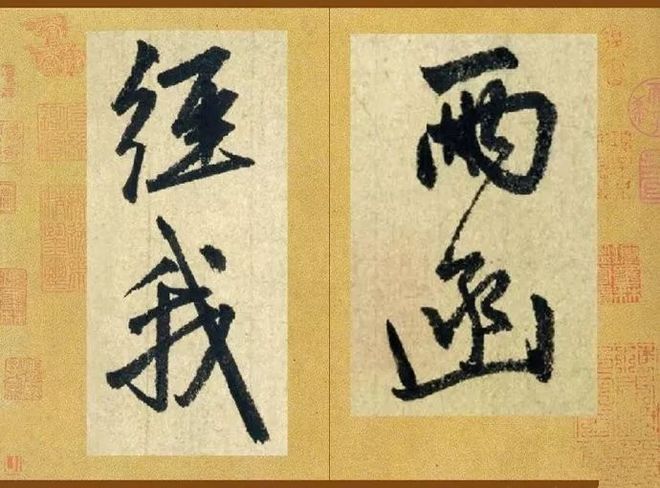 兩函
經我